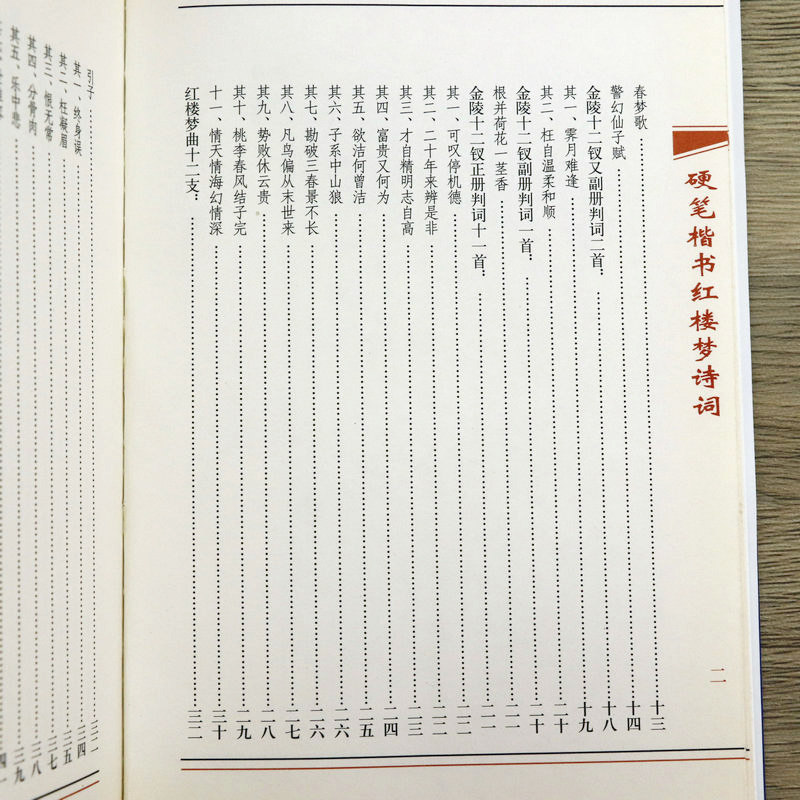 硬笔楷书红楼梦诗词
二
春梦歌……十三
警幻仙子赋……十四
金陵十二钗又副册判词二首：……十八
其一、霁月难逢……十九
其二、枉自温柔和顺……二十
金陵十二钗副册判词一首：……二十
根并荷花一茎香……二一
金陵十二钗正册判词十一首：……二一
其一、可叹停机德……二二
其二、二十年来辨是非……二二
其三、才自精明志自高……二三
其四、富贵又何为……二四
其五、欲洁何曾洁……二五
其六、子系中山狼……二六
其七、勘破三春景不长……二六
其八、凡鸟偏从末世来……二七
其九、势败休云贵……二八
其十、桃李春风结子完……二九
十一、情天情海幻情深……三十
红楼梦曲十二支：……三二
引子……三二
其一、终身误……三四
其二、枉凝眉……三五
其三、恨无常……三七
其四、分骨肉……三八
其五、乐中悲……三九